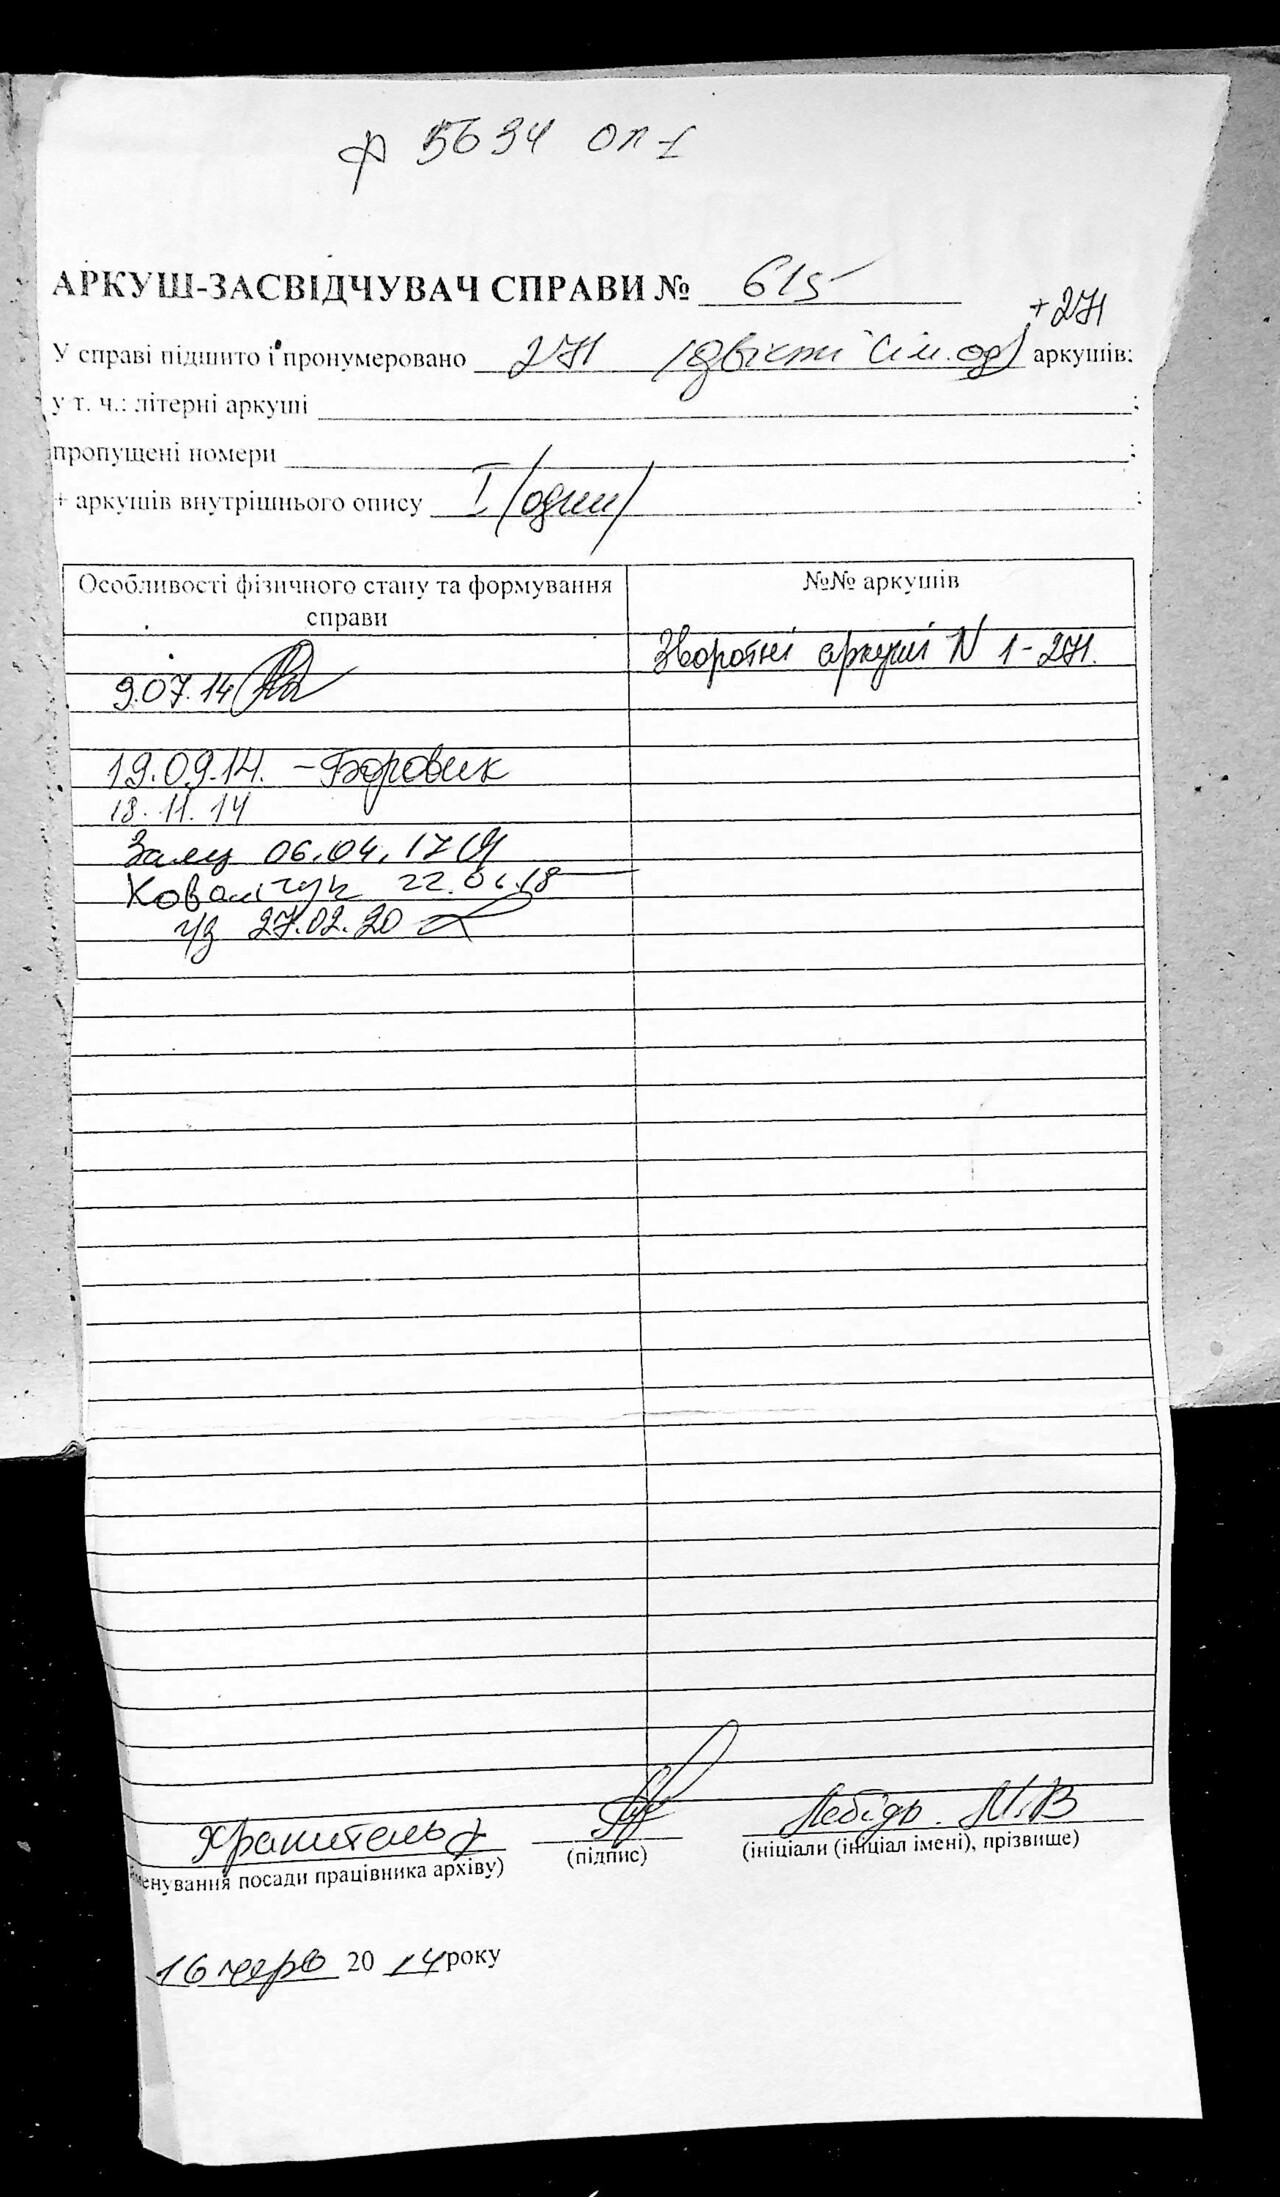 ф 5694 оп-1
АРКУШ-ЗАСВІДЧУВАЧ СПРАВИ № 615
+ 271
У справі підшито і пронумеровано 271 (двісті сім. од) аркушів;
у т. ч.: літерні аркуші ;
пропущені номери ;
+ аркушів внутрішнього опису I (один) ;
Особливості фізичного стану та формування справи
№№ аркушів
Зворотні аркуші N 1-271.
9.07.14
19.09.14. – Боровик
18.11.14
Залец 06.04.17
Ковальчук 22.01.18
ч/з 27.02.20
Хранитель Лебідь. М.В
(підпис)
(ініціали (ініціал імені), прізвище)
енування посади працівника архіву)
16 черв 20 14 року